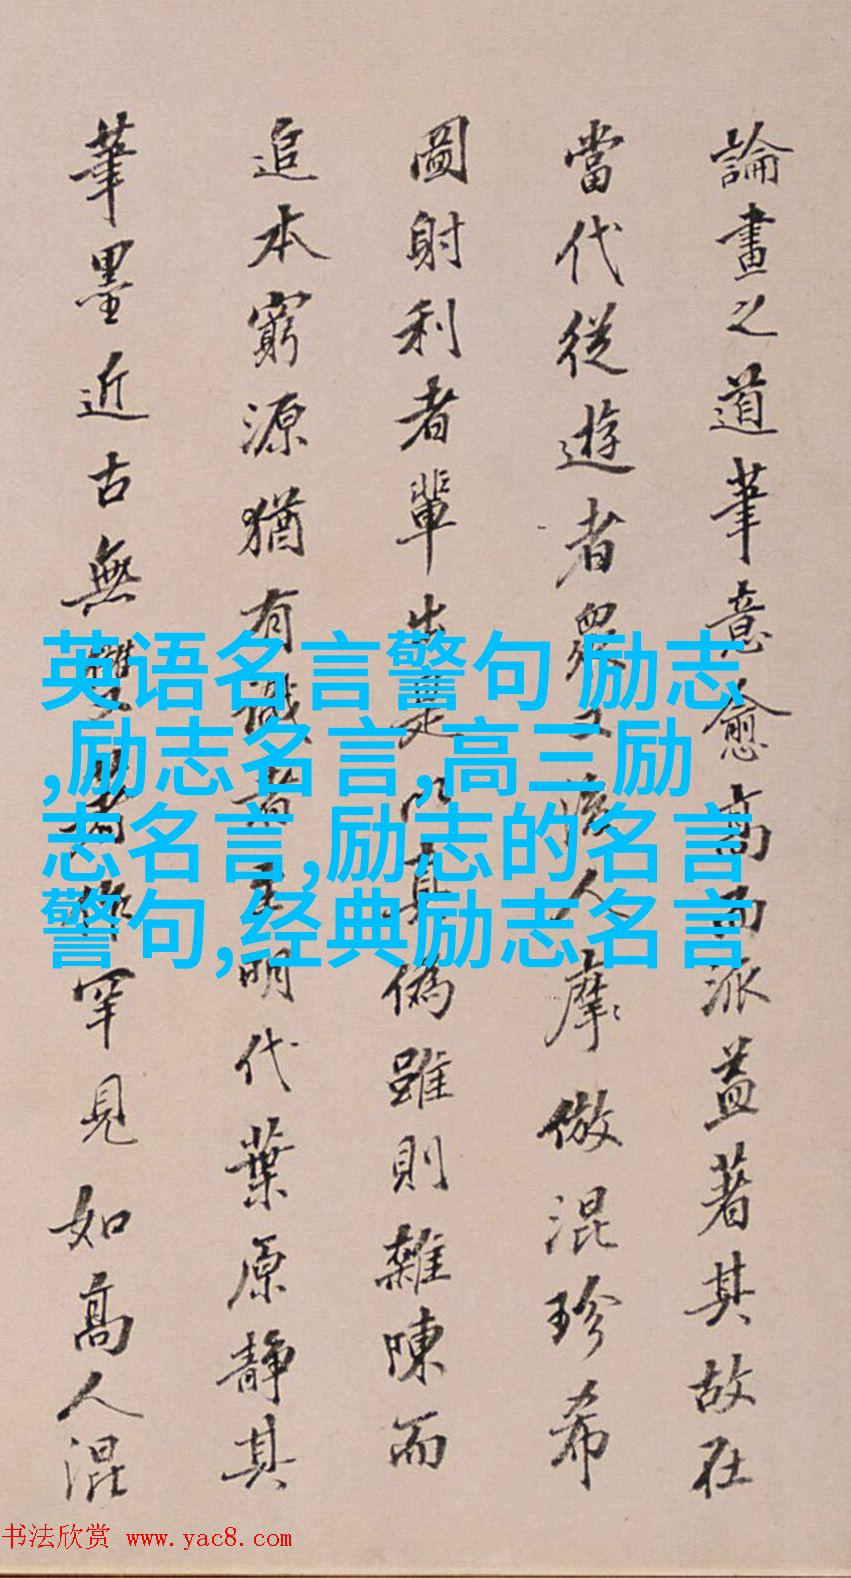 論畫之道筆意愈高而派益著其故在
當代從遊者眾工濱人摩倣混珍希
圖射利者輩出是以真偽雖則雜陳而
追本窮源猶有識者至明代葉原靜其
筆墨近古無雙署作罕見如高人混
英语名言警句 励志
,励志名言,高三励
志名言,励志的名言
警句,经典励志名言
书法欣赏 www.yac8.com